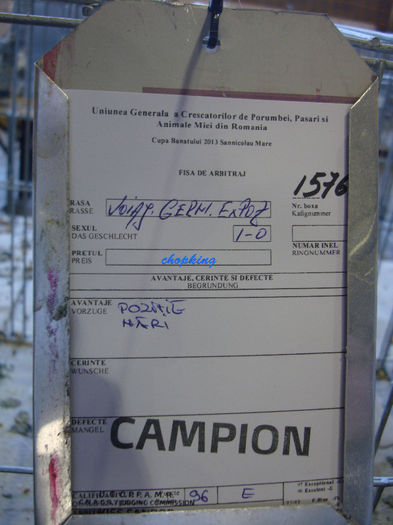 Uniunea Generala a Crescatorilor de Porumbei, Pasari si
Animale Mici din Romania
Cupa Banatului 2013 Sannicolau Mare
FISA DE ARBITRAJ
1576
RASA
RASSE
VOIAJ. GERM. EXPOZ
Nr. boxa
Kafignummer
SEXUL
DAS GESCHLECHT
1-0
NUMAR INEL
RINGNUMMER
PRETUL
PREIS
chopking
AVANTAJE, CERINTE SI DEFECTE
BEGRUNDUNG
AVANTAJE
VORZUGE
POZIȚIE
CERINTE
WUNSCHE
DEFECTE
MANGEL
CAMPION
96
E
JUDGING COMMISSION